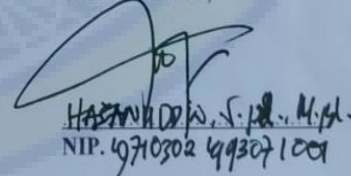 HASANUDDIN, S.Pd., M.Pd.
NIP. 19710302 199307 1 001